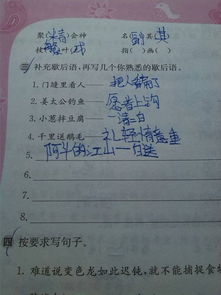 聚(精)会神 名(副)其(其)
按(部)叶(戏) 指( )画( )
三 补充歇后语,再写几个你熟悉的歇后语。
1. 门缝里看人——把人看扁了
2. 姜太公钓鱼——愿者上钩
3. 小葱拌豆腐——一清二白
4. 千里送鹅毛——礼轻情意重
5. 阿斗的江山——白送
四 按要求写句子。
1. 难道说变色龙如此迟钝,就不能捕捉食